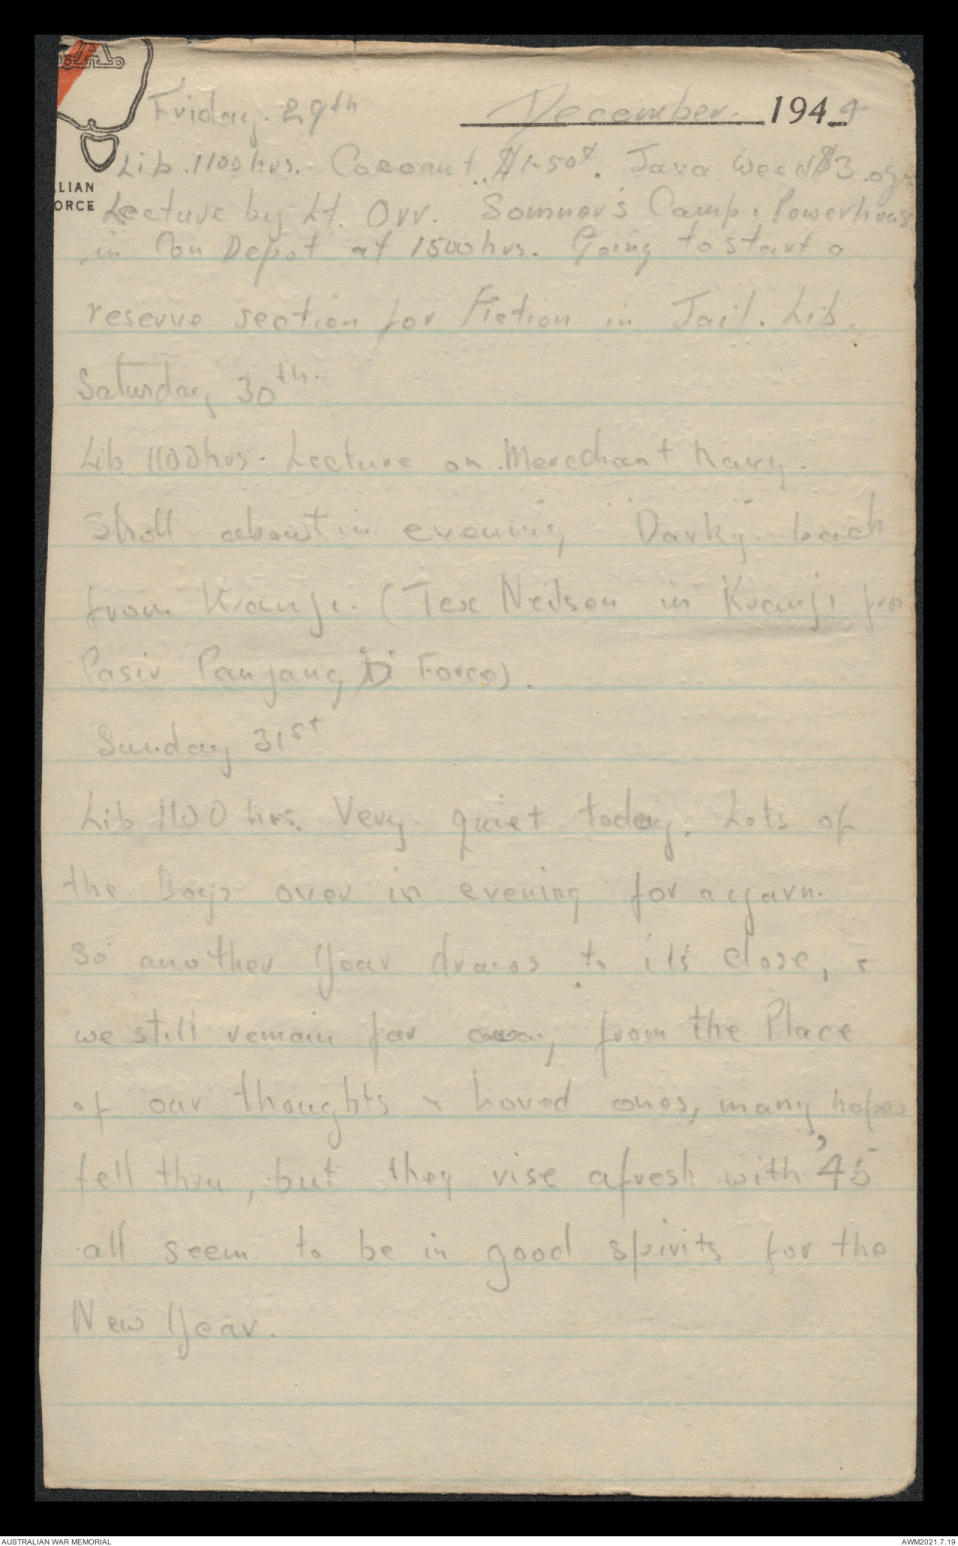 Friday. 29th December. 1944
LIAN
ORCE
Lib. 1100hrs. Coconut. $1-50¢. Java Weed $3. ogs
Lecture by Lt. Orr. Somner's Camp, Powerhouse
in Con Depot at 1500hrs. Going to start a
reserve section for Fiction in Jail. Lib.
Saturday 30th.
Lib 1100hrs. Lecture on Merchant Navy.
Stroll about in evening "Darky" back
from Kranji. (Tex Neilson in Kranji from
Pasir Panjang 'D' Force).
Sunday 31st
Lib 1100 hrs. Very quiet today. Lots of
the Boys over in evening for a yarn.
So another Year draws to its close, &
we still remain far away from the Place
of our thoughts & Loved ones, many hopes
fell thru, but they rise afresh with '45
all seem to be in good spirits for the
New Year.
AUSTRALIAN WAR MEMORIAL
AWM2021.7.19